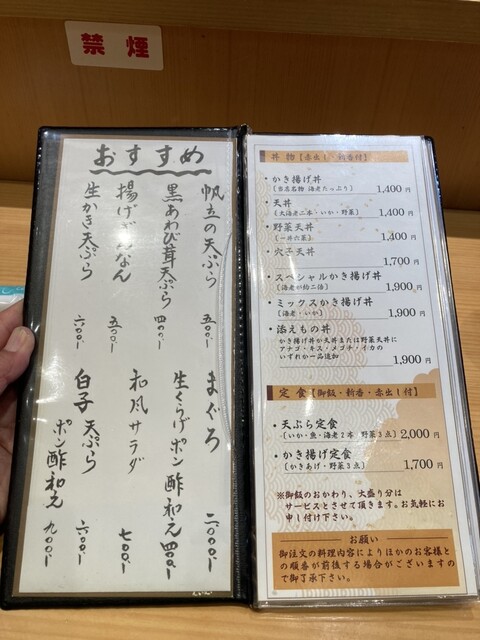 禁煙
おすすめ
帆立の天ぷら 五〇〇、
黒あわび茸天ぷら 四〇〇、
揚げぎんなん 五〇〇、
生かき天ぷら 六〇〇、
まぐろ 二〇〇〇、
生くらげポン酢和え 四〇〇、
和風サラダ 七〇〇、
白子 天ぷら 六〇〇、
ポン酢和え 九〇〇、
丼物【赤出し・新香付】
・かき揚げ丼
(当店名物 海老たっぷり) 1,400円
・天丼
(大海老二本・いか・野菜) 1,400円
・野菜天丼
(一丼六菜) 1,400円
・穴子天丼 1,700円
・スペシャルかき揚げ丼
(海老が約二倍) 1,900円
・ミックスかき揚げ丼
(海老・いか) 1,900円
・添えもの丼
かき揚げ丼か天丼または野菜天丼に
アナゴ・キス・メゴチ・イカの
いずれか一品追加 1,900円
定食【御飯・新香・赤出し付】
・天ぷら定食
(いか・魚・海老2本・野菜3点) 2,000円
・かき揚げ定食
(かきあげ・野菜3点) 1,700円
※御飯のおかわり、大盛り分は
サービスとさせて頂きます。お気軽にお
申し付け下さい。
お願い
御注文の料理内容によりほかのお客様と
の順番が前後する場合がございますの
で御了承下さい。